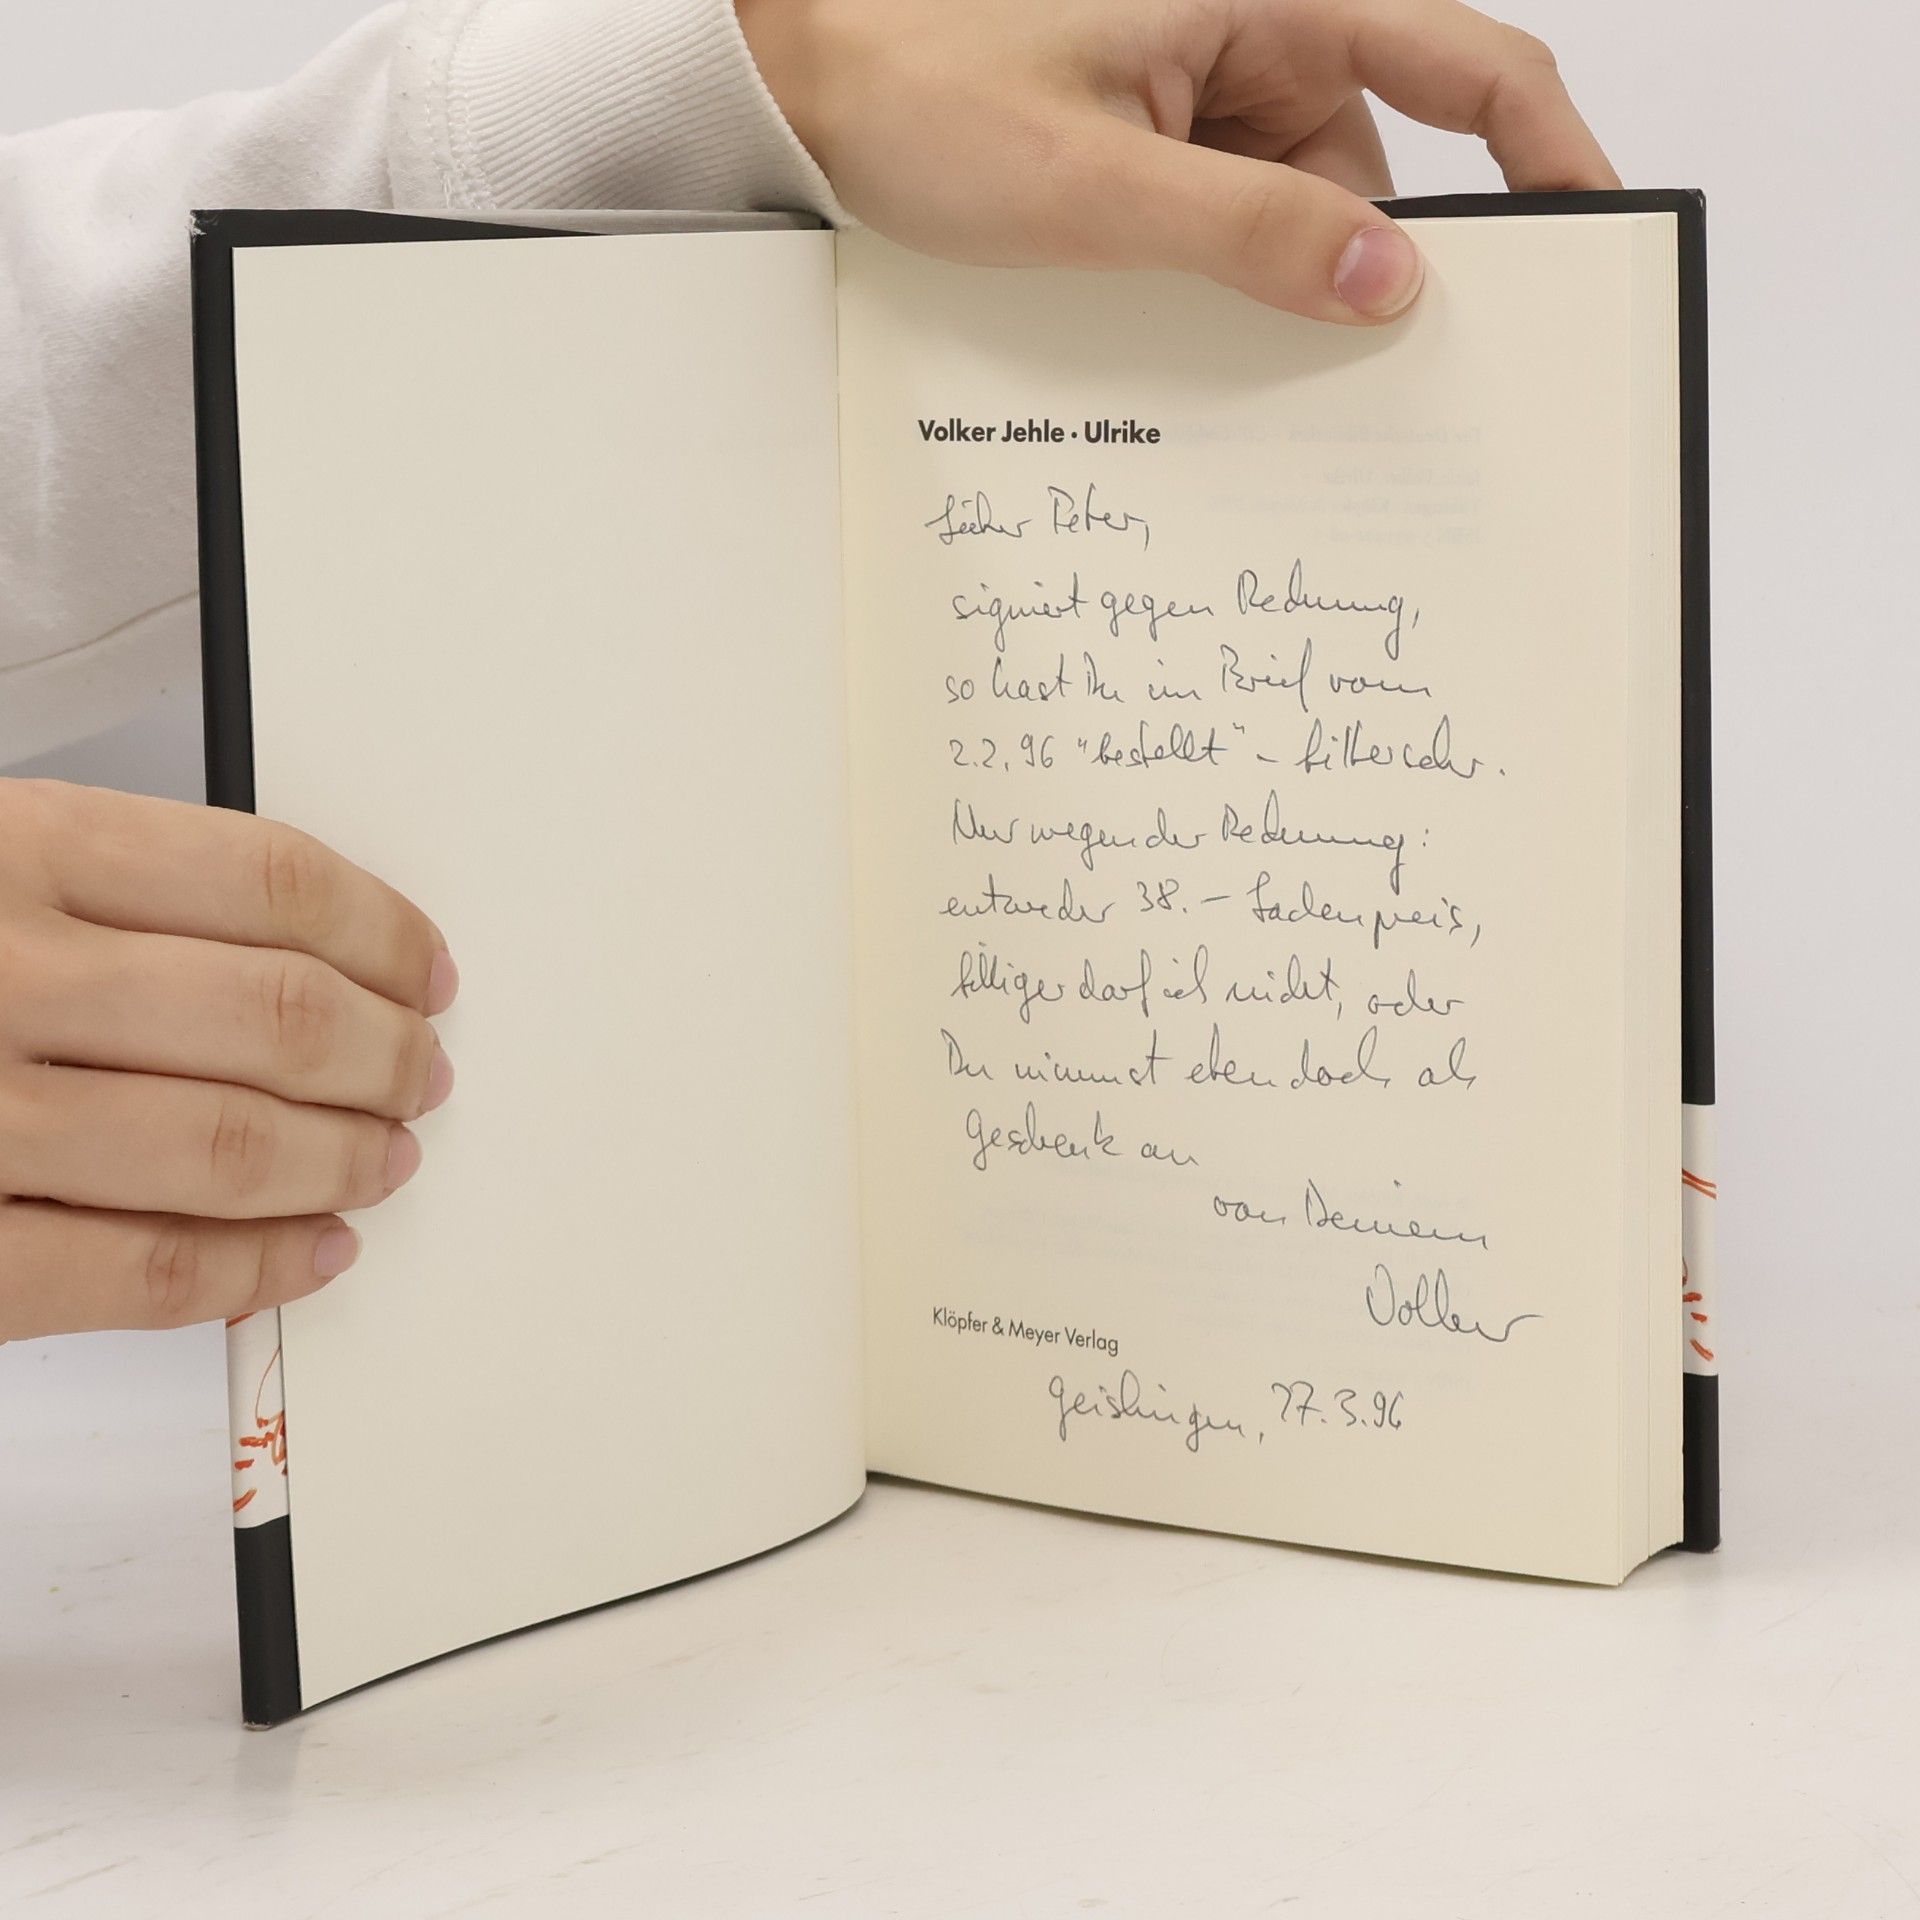 Volker Jehle · Ulrike
Lieber Peter,
signiert gegen Rechnung,
so hast Du im Brief vom
2.2.96 "bestellt" – bittesehr.
Nur wegen der Rechnung:
entweder 38.– Ladenpreis,
billiger darf ich nicht, oder
Du nimmst eben doch als
Geschenk an
von Deinem
Volker
Klöpfer & Meyer Verlag
Geislingen, 27.3.96